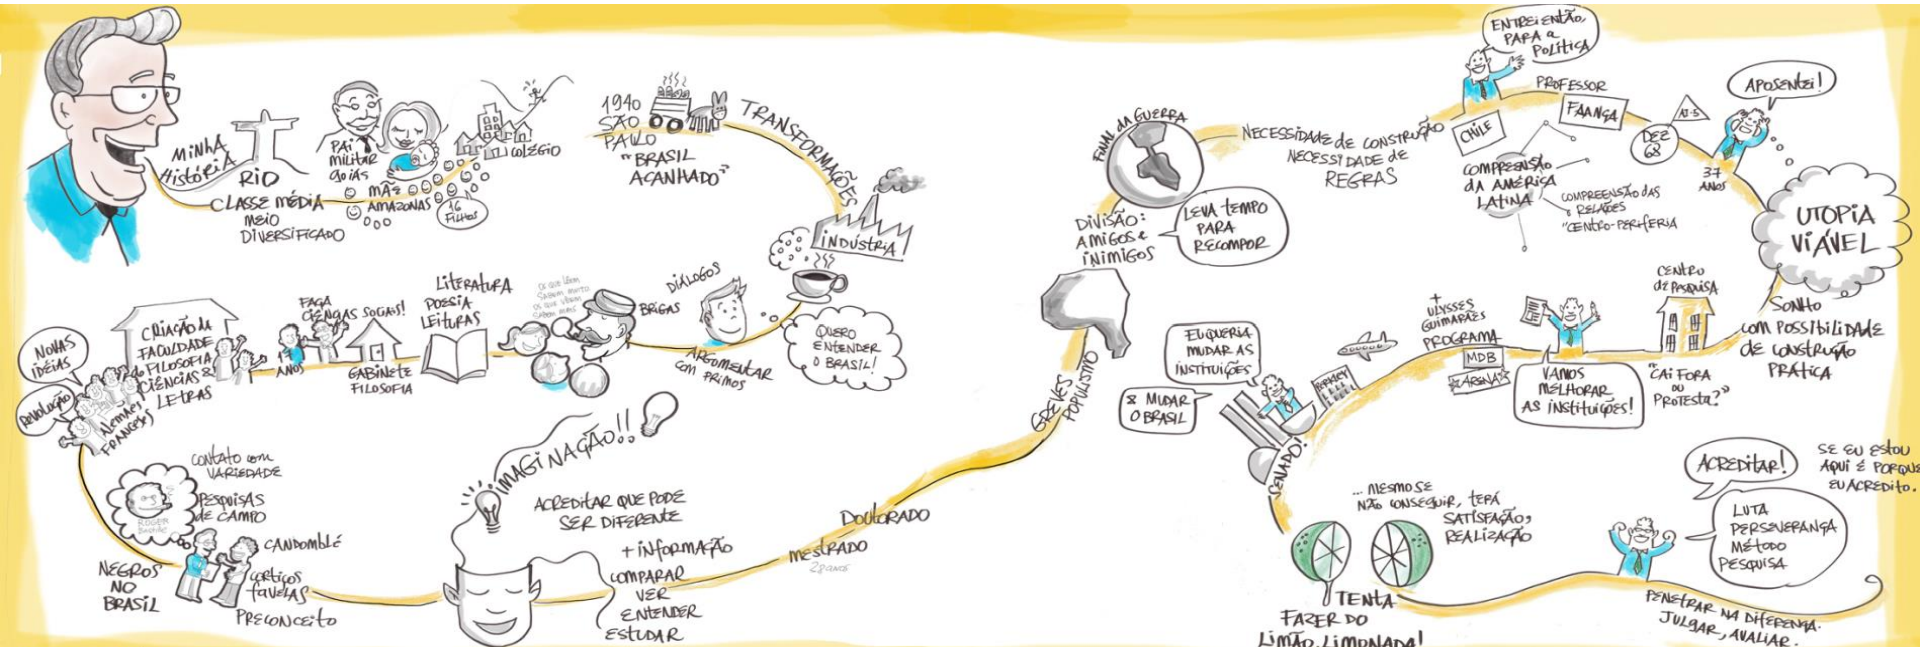 MINHA
HISTÓRIA
RIO
CLASSE MÉDIA
MEIO
DIVERSIFICADO
PAI
MILITAR
GOIÁS
MÃE
AMAZONAS
16
FILHOS
COLÉGIO
1940
SÃO
PAULO
"BRASIL
ACANHADO"
TRANSFORMAÇÕES
INDÚSTRIA
QUERO
ENTENDER
O BRASIL!
DIÁLOGOS
BRIGAS
ARGUMENTAR
COM PRIMOS
OS QUE LÊEM
SABEM MUITO
OS QUE VIVEM
SABEM MAIS
LITERATURA
POESIA
LEITURAS
GABINETE
FILOSOFIA
FAÇA
CIÊNCIAS SOCIAIS!
17
ANOS
CRIAÇÃO DA
FACULDADE
DE FILOSOFIA
CIÊNCIAS &
LETRAS
NOVAS
IDÉIAS
REVOLUÇÃO
ALEMÃES
FRANCESES
CONTATO COM
VARIEDADE
PESQUISAS
DE CAMPO
ROGER
BASTIDE
NEGROS
NO
BRASIL
CANDOMBLÉ
CORTIÇOS
FAVELAS
PRECONCEITO
IMAGINAÇÃO!!
ACREDITAR QUE PODE
SER DIFERENTE
+ INFORMAÇÃO
COMPARAR
VER
ENTENDER
ESTUDAR
MESTRADO
28 ANOS
DOUTORADO
GREVES
POPULISMO
DIVISÃO:
AMIGOS E
INIMIGOS
FINAL DA GUERRA
LEVA TEMPO
PARA
RECOMPOR
NECESSIDADE DE CONSTRUÇÃO
NECESSIDADE DE
REGRAS
ENTREI ENTÃO,
PARA A
POLÍTICA
PROFESSOR
CHILE
FRANÇA
COMPREENSÃO
DA AMÉRICA
LATINA
COMPREENSÃO DAS
RELAÇÕES
"CENTRO-PERIFERIA
DEZ
68
AI-5
APOSENTEI!
37
ANOS
UTOPIA
VIÁVEL
SONHO
COM POSSIBILIDADE
DE CONSTRUÇÃO
PRÁTICA
CENTRO
DE PESQUISA
"CAI FORA
OU
PROTESTA?"
VAMOS
MELHORAR
AS INSTITUIÇÕES!
+
ULYSSES
GUIMARÃES
PROGRAMA
MDB
ARENA
BERKLEY
EU QUERIA
MUDAR AS
INSTITUIÇÕES
& MUDAR
O BRASIL
SENADO!
... MESMO SE
NÃO CONSEGUIR, TERÁ
SATISFAÇÃO,
REALIZAÇÃO
TENTA
FAZER DO
LIMÃO, LIMONADA!
ACREDITAR!
SE EU ESTOU
AQUI É PORQUE
EU ACREDITO.
LUTA
PERSEVERANÇA
MÉTODO
PESQUISA
PENETRAR NA DIFERENÇA.
JULGAR, AVALIAR.